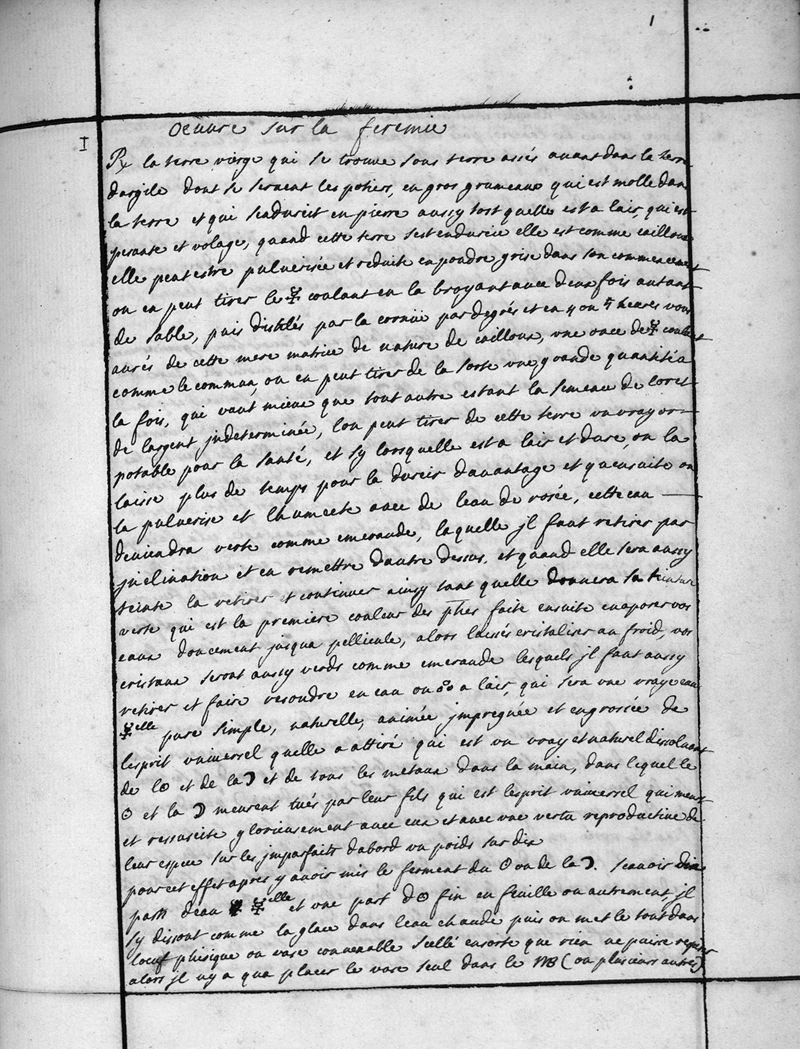 1
oeuvre sur la feremie
I
℞ la terre vierge qui se trouve sous terre assés avant dans la terre
dargile dont se servent les potier, en gros grumeaux qui est molle dans
la terre et qui sendurcit en pierre aussy tost quelle est a lair, qui est
pesante et volage, quand cette terre sest endurcie elle est comme cailloux
elle peut estre pulverisée et reduite en poudre grise dans son commencement
on en peut tirer le ☿ coulant en la broyant avec deux fois autant
de sable, puis distilés par la cornüe par degrés et en 4 ou 5 heures vous
aurés de cette mere matrice de nature de cailloux, une once de ☿ coulant
comme le commun, on en peut tirer de la sorte une grande quantité a
la fois, qui vaut mieux que tout autre estant la semence de lor et
de largent jndeterminée, lon peut tirer de cette terre un vray or
potable pour la santé, et sy lorsquelle est a lair et dure, on la
laisse plus de temps pour la durcir davantage et quensuite on
la pulverise et lhumecte avec de leau de rosée, cette eau
deviendra verte comme emeraude, laquelle jl faut retirer par
jnclination et en remettre dautre dessus, et quand elle sera aussy
teinte la retirer et continuer ainsy tant quelle donnera sa teinture
verte qui est la premiere couleur des phes faite ensuite evaporer vos
eaux doucement jusqua pellicule, alors laissés cristaliser au froid, vos
cristaux seront aussy verds comme emeraude lesquels jl faut aussy
retirer et faire resoudre en eau ou a lair, qui sera une vraye eau
☿elle pure simple, naturelle, animée jmpregnée et engrossée de
lesprit universel quelle a attiré qui est un vray et naturel dissolvant
de l☉ et de la ☽ et de tous les metaux dans la main, dans lequel le
☉ et la ☽ meurent tués par leur fils qui est lesprit universel qui meurt
et ressuscite glorieusement avec eux et avec une vertu reproductive de
leur espece sur les jmparfaits dabord un poids sur dix
pour cet effet apres y avoir mis le ferment du ☉ ou de la ☽. scavoir dix
parts deau ☿elle et une part d☉ fin en feuille ou autrement, jl
sy dissout comme la glace dans leau chaude puis on met le tout dans
loeuf phisique ou vase convenable scellé ensorte que rien ne puisse
alors jl ny a qua placer le vase seul dans le MB (ou plusieurs autres)